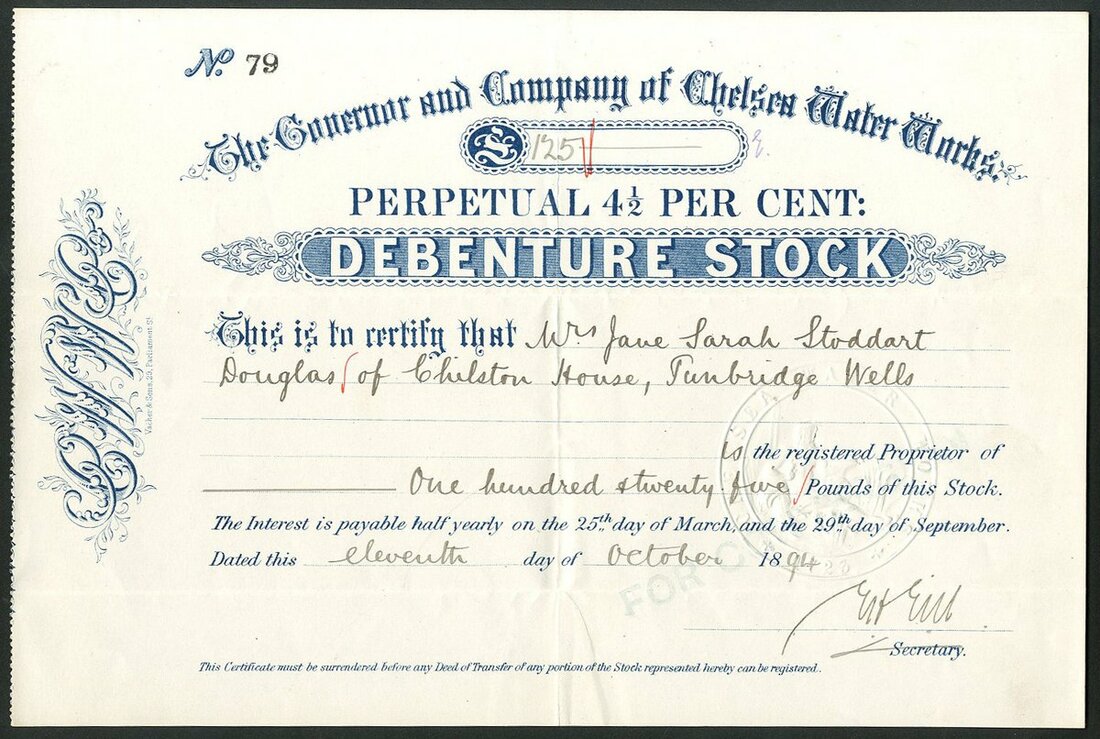 No. 79
The Governor and Company of Chelsea Water Works.
£ 125
PERPETUAL 4½ PER CENT:
DEBENTURE STOCK
This is to certify that Mrs Jane Sarah Stoddart
Douglas of Chilston House, Tunbridge Wells
is the registered Proprietor of
One hundred & twenty five Pounds of this Stock.
The Interest is payable half yearly on the 25th day of March, and the 29th day of September.
Dated this eleventh day of October 1894
Secretary.
This Certificate must be surrendered before any Deed of Transfer of any portion of the Stock represented hereby can be registered.
Vacher & Sons, 29, Parliament St.
FOR